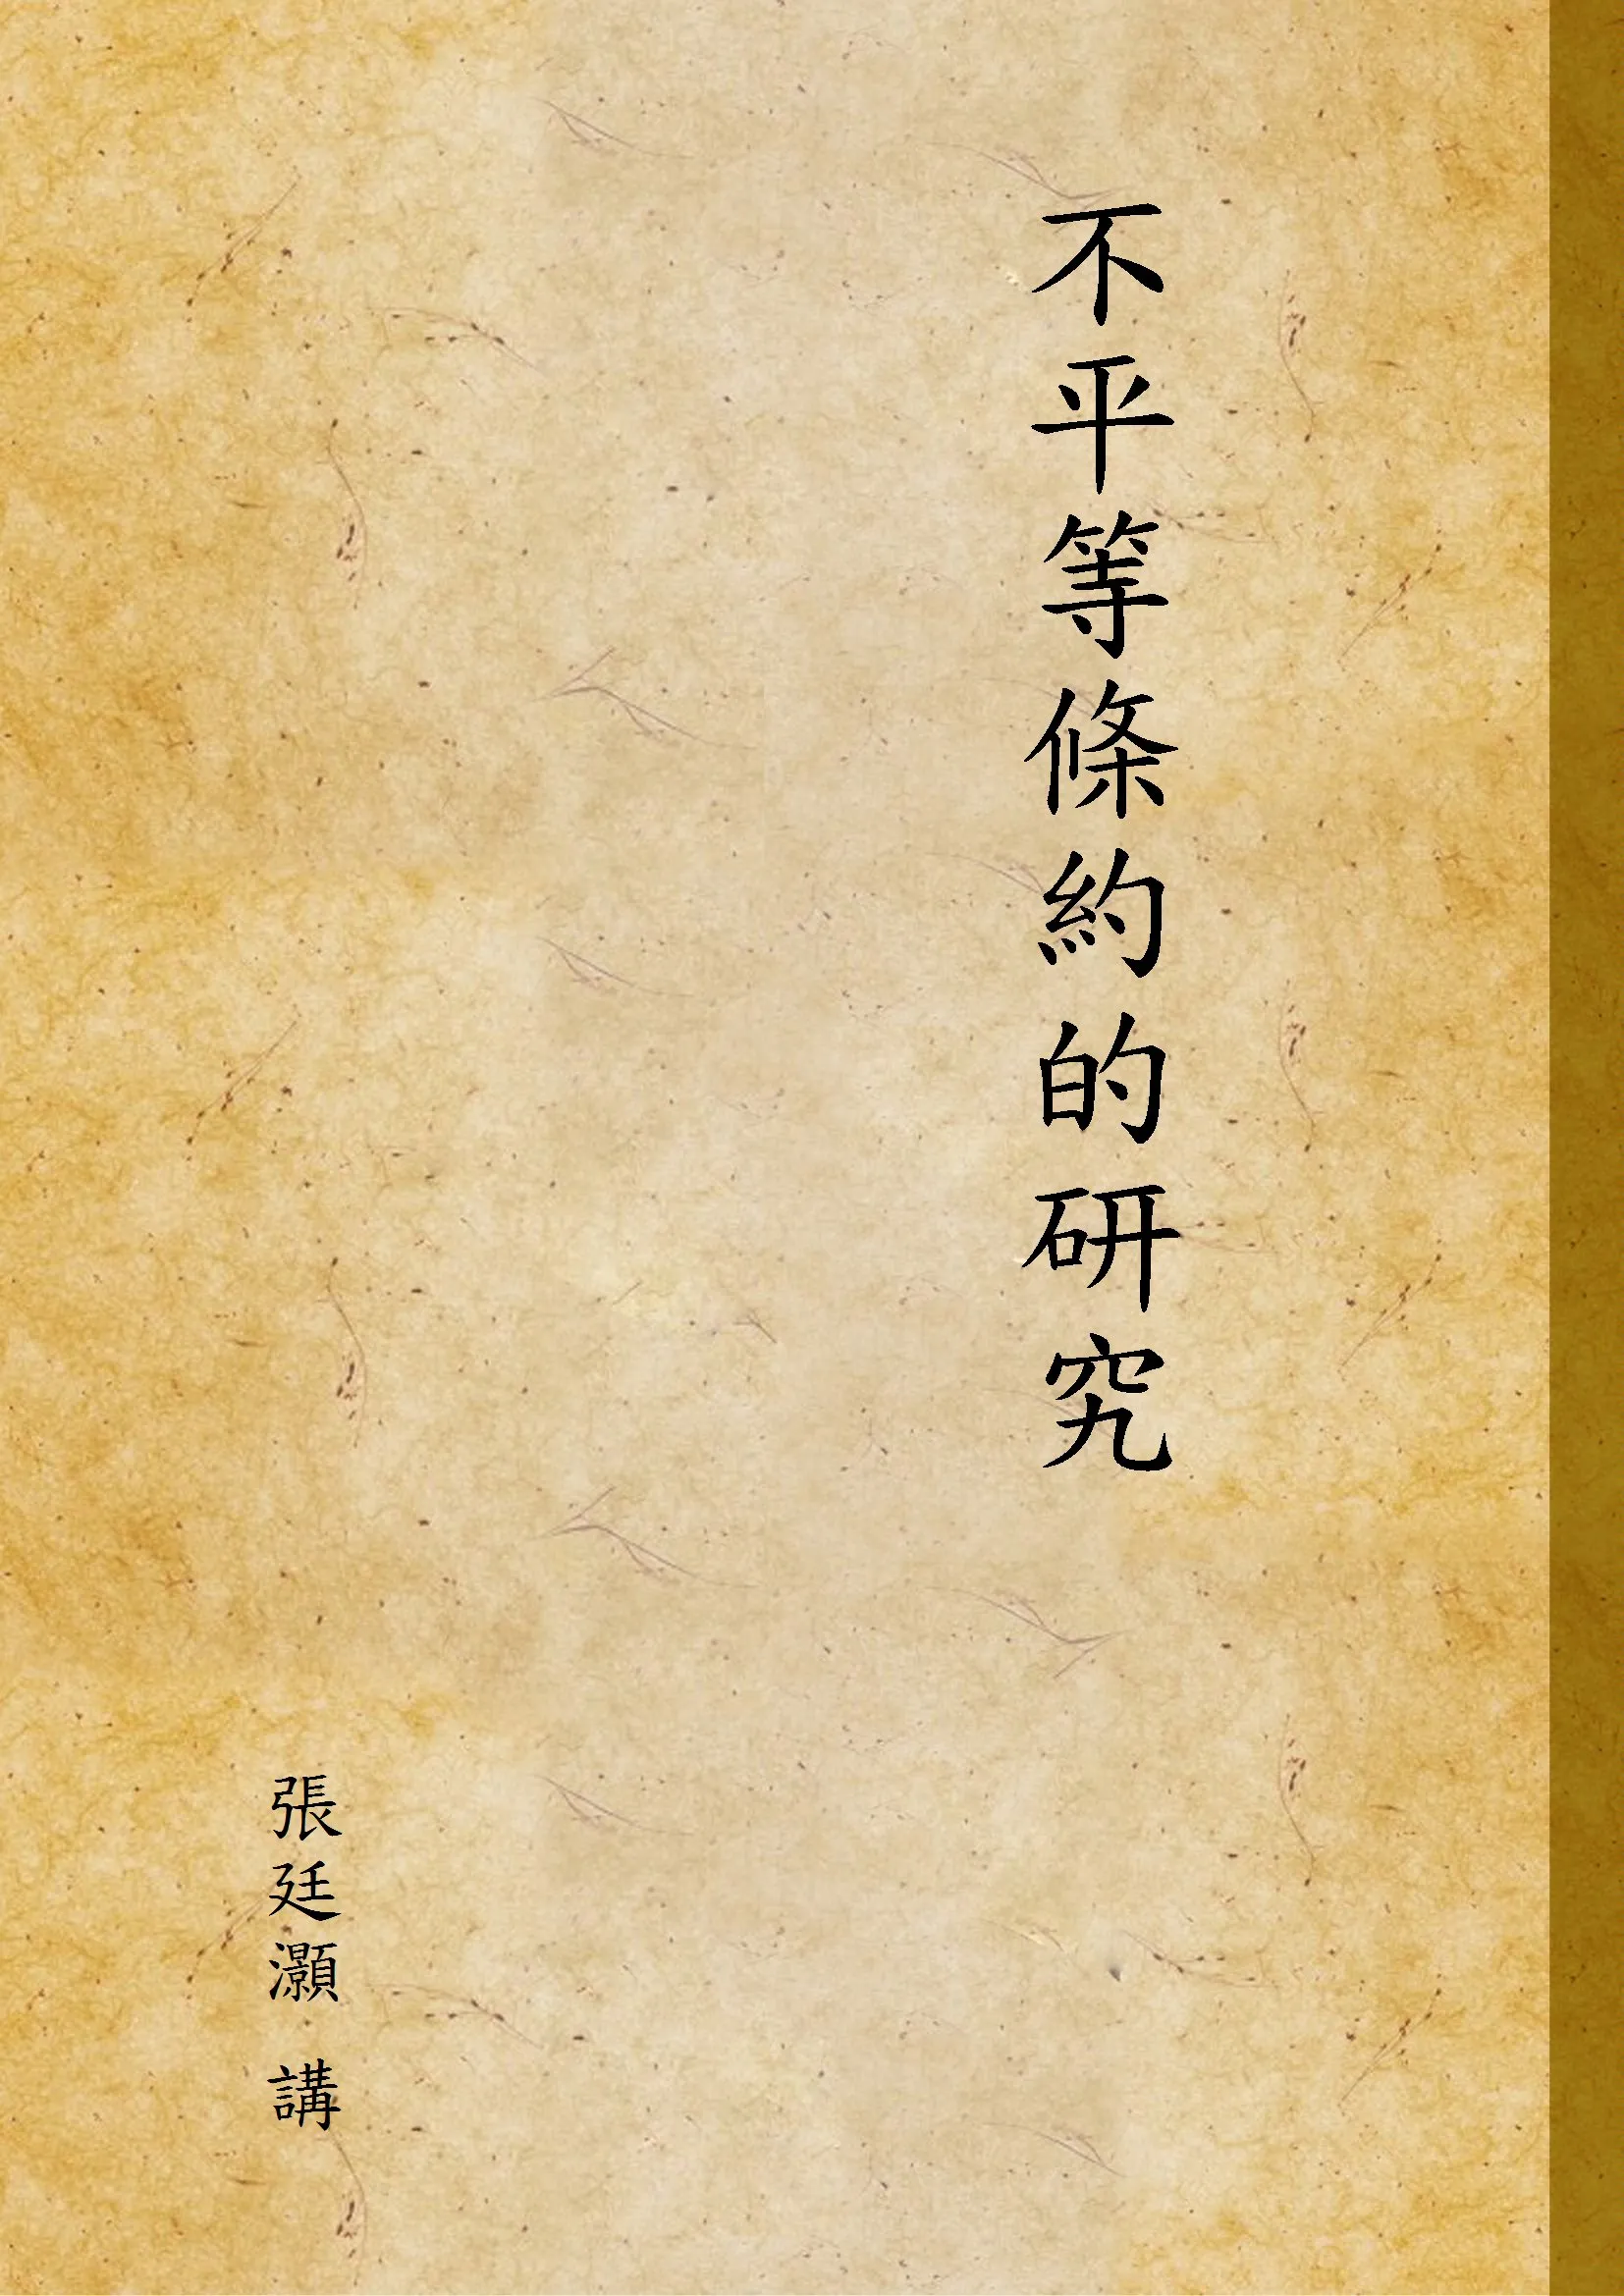 不平等條約的研究
張廷灝 講